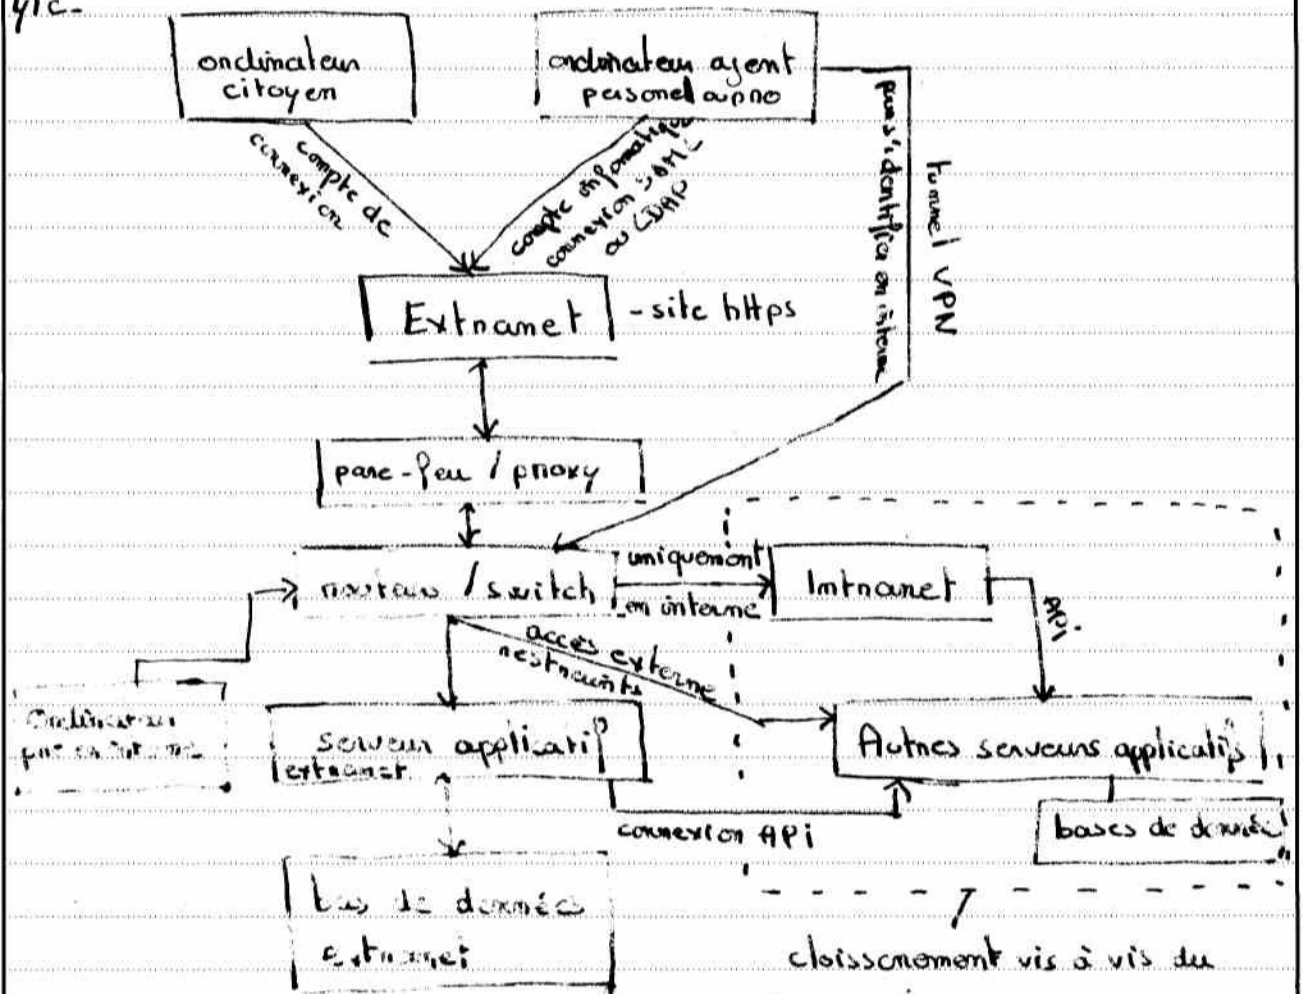 ordinateur
citoyen
ordinateur agent
personel ou pro
compte de
connexion
compte informatique
connexion SAML
ou LDAP
pour s'identifier en interne
tunnel VPN
Extranet
- site https
pare-feu / proxy
routeur / switch
uniquement
en interne
Intranet
API
accès externe
restreints
Ordinateur
serveur applicatif
extranet
Autres serveurs applicatifs
connexion API
bases de données
bas de données
extranet
cloissonement vis à vis du